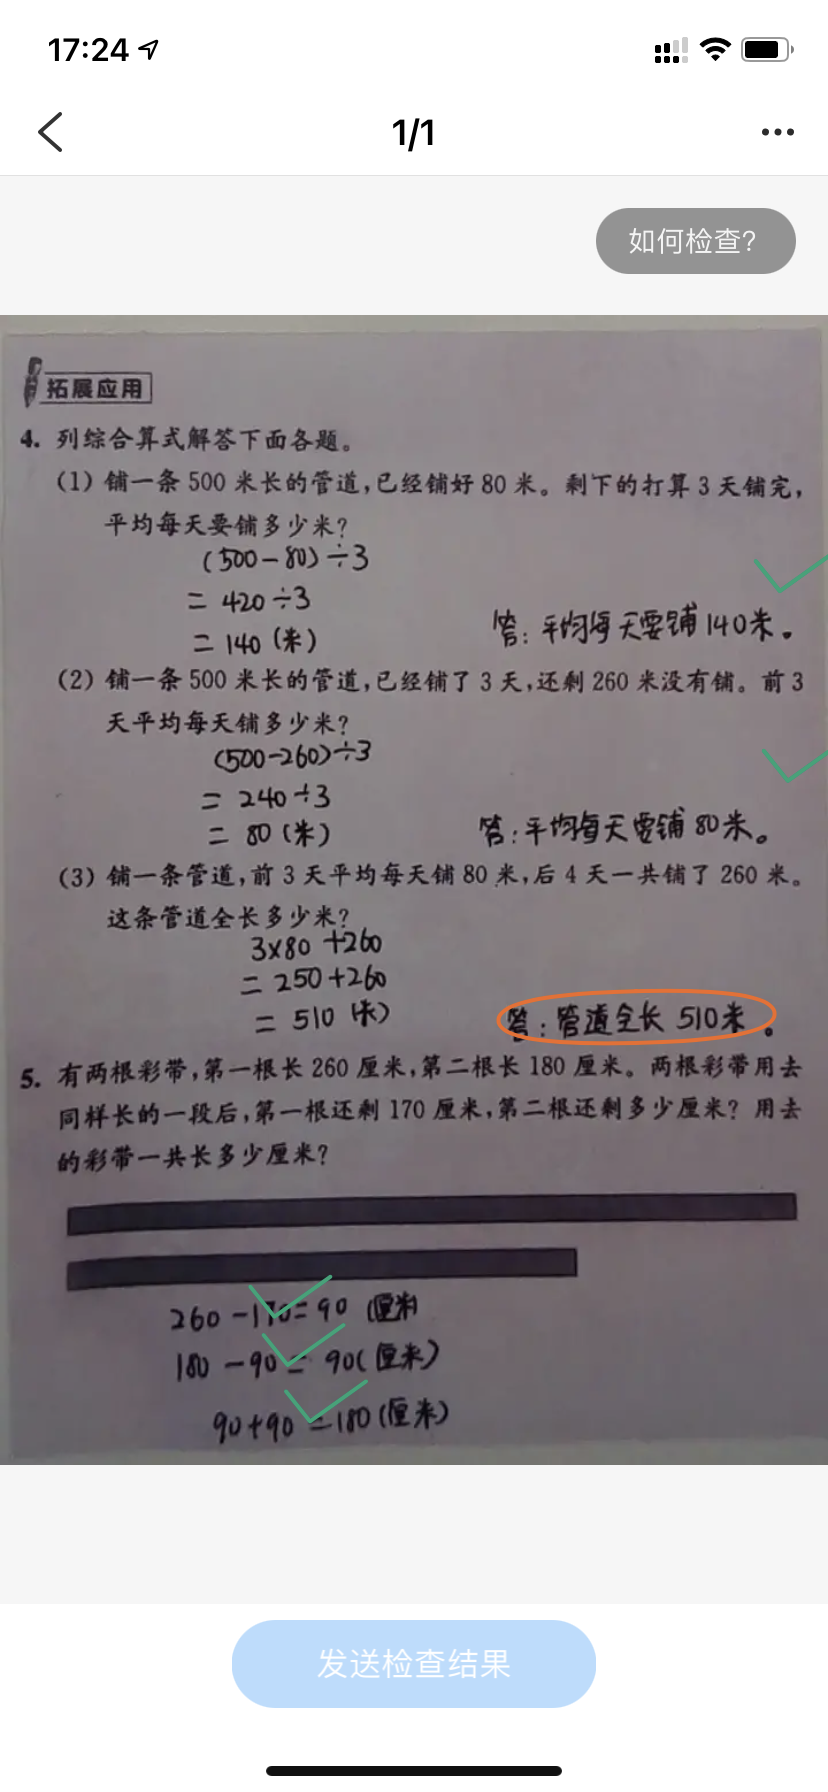 17:24
1/1
如何检查?
拓展应用
4. 列综合算式解答下面各题。
(1) 铺一条 500 米长的管道,已经铺好 80 米。剩下的打算 3 天铺完,
平均每天要铺多少米?
(500-80)÷3
= 420÷3
= 140 (米)
答: 平均每天要铺140米。
(2) 铺一条 500 米长的管道,已经铺了 3 天,还剩 260 米没有铺。前 3
天平均每天铺多少米?
(500-260)÷3
= 240÷3
= 80 (米)
答:平均每天要铺 80米。
(3) 铺一条管道,前 3 天平均每天铺 80 米,后 4 天一共铺了 260 米。
这条管道全长多少米?
3×80+260
= 250+260
= 510 (米)
答:管道全长 510米。
5. 有两根彩带,第一根长 260 厘米,第二根长 180 厘米。两根彩带用去
同样长的一段后,第一根还剩 170 厘米,第二根还剩多少厘米? 用去
的彩带一共长多少厘米?
260-170=90 (厘米)
180-90= 90(厘米)
90+90=180(厘米)
发送检查结果